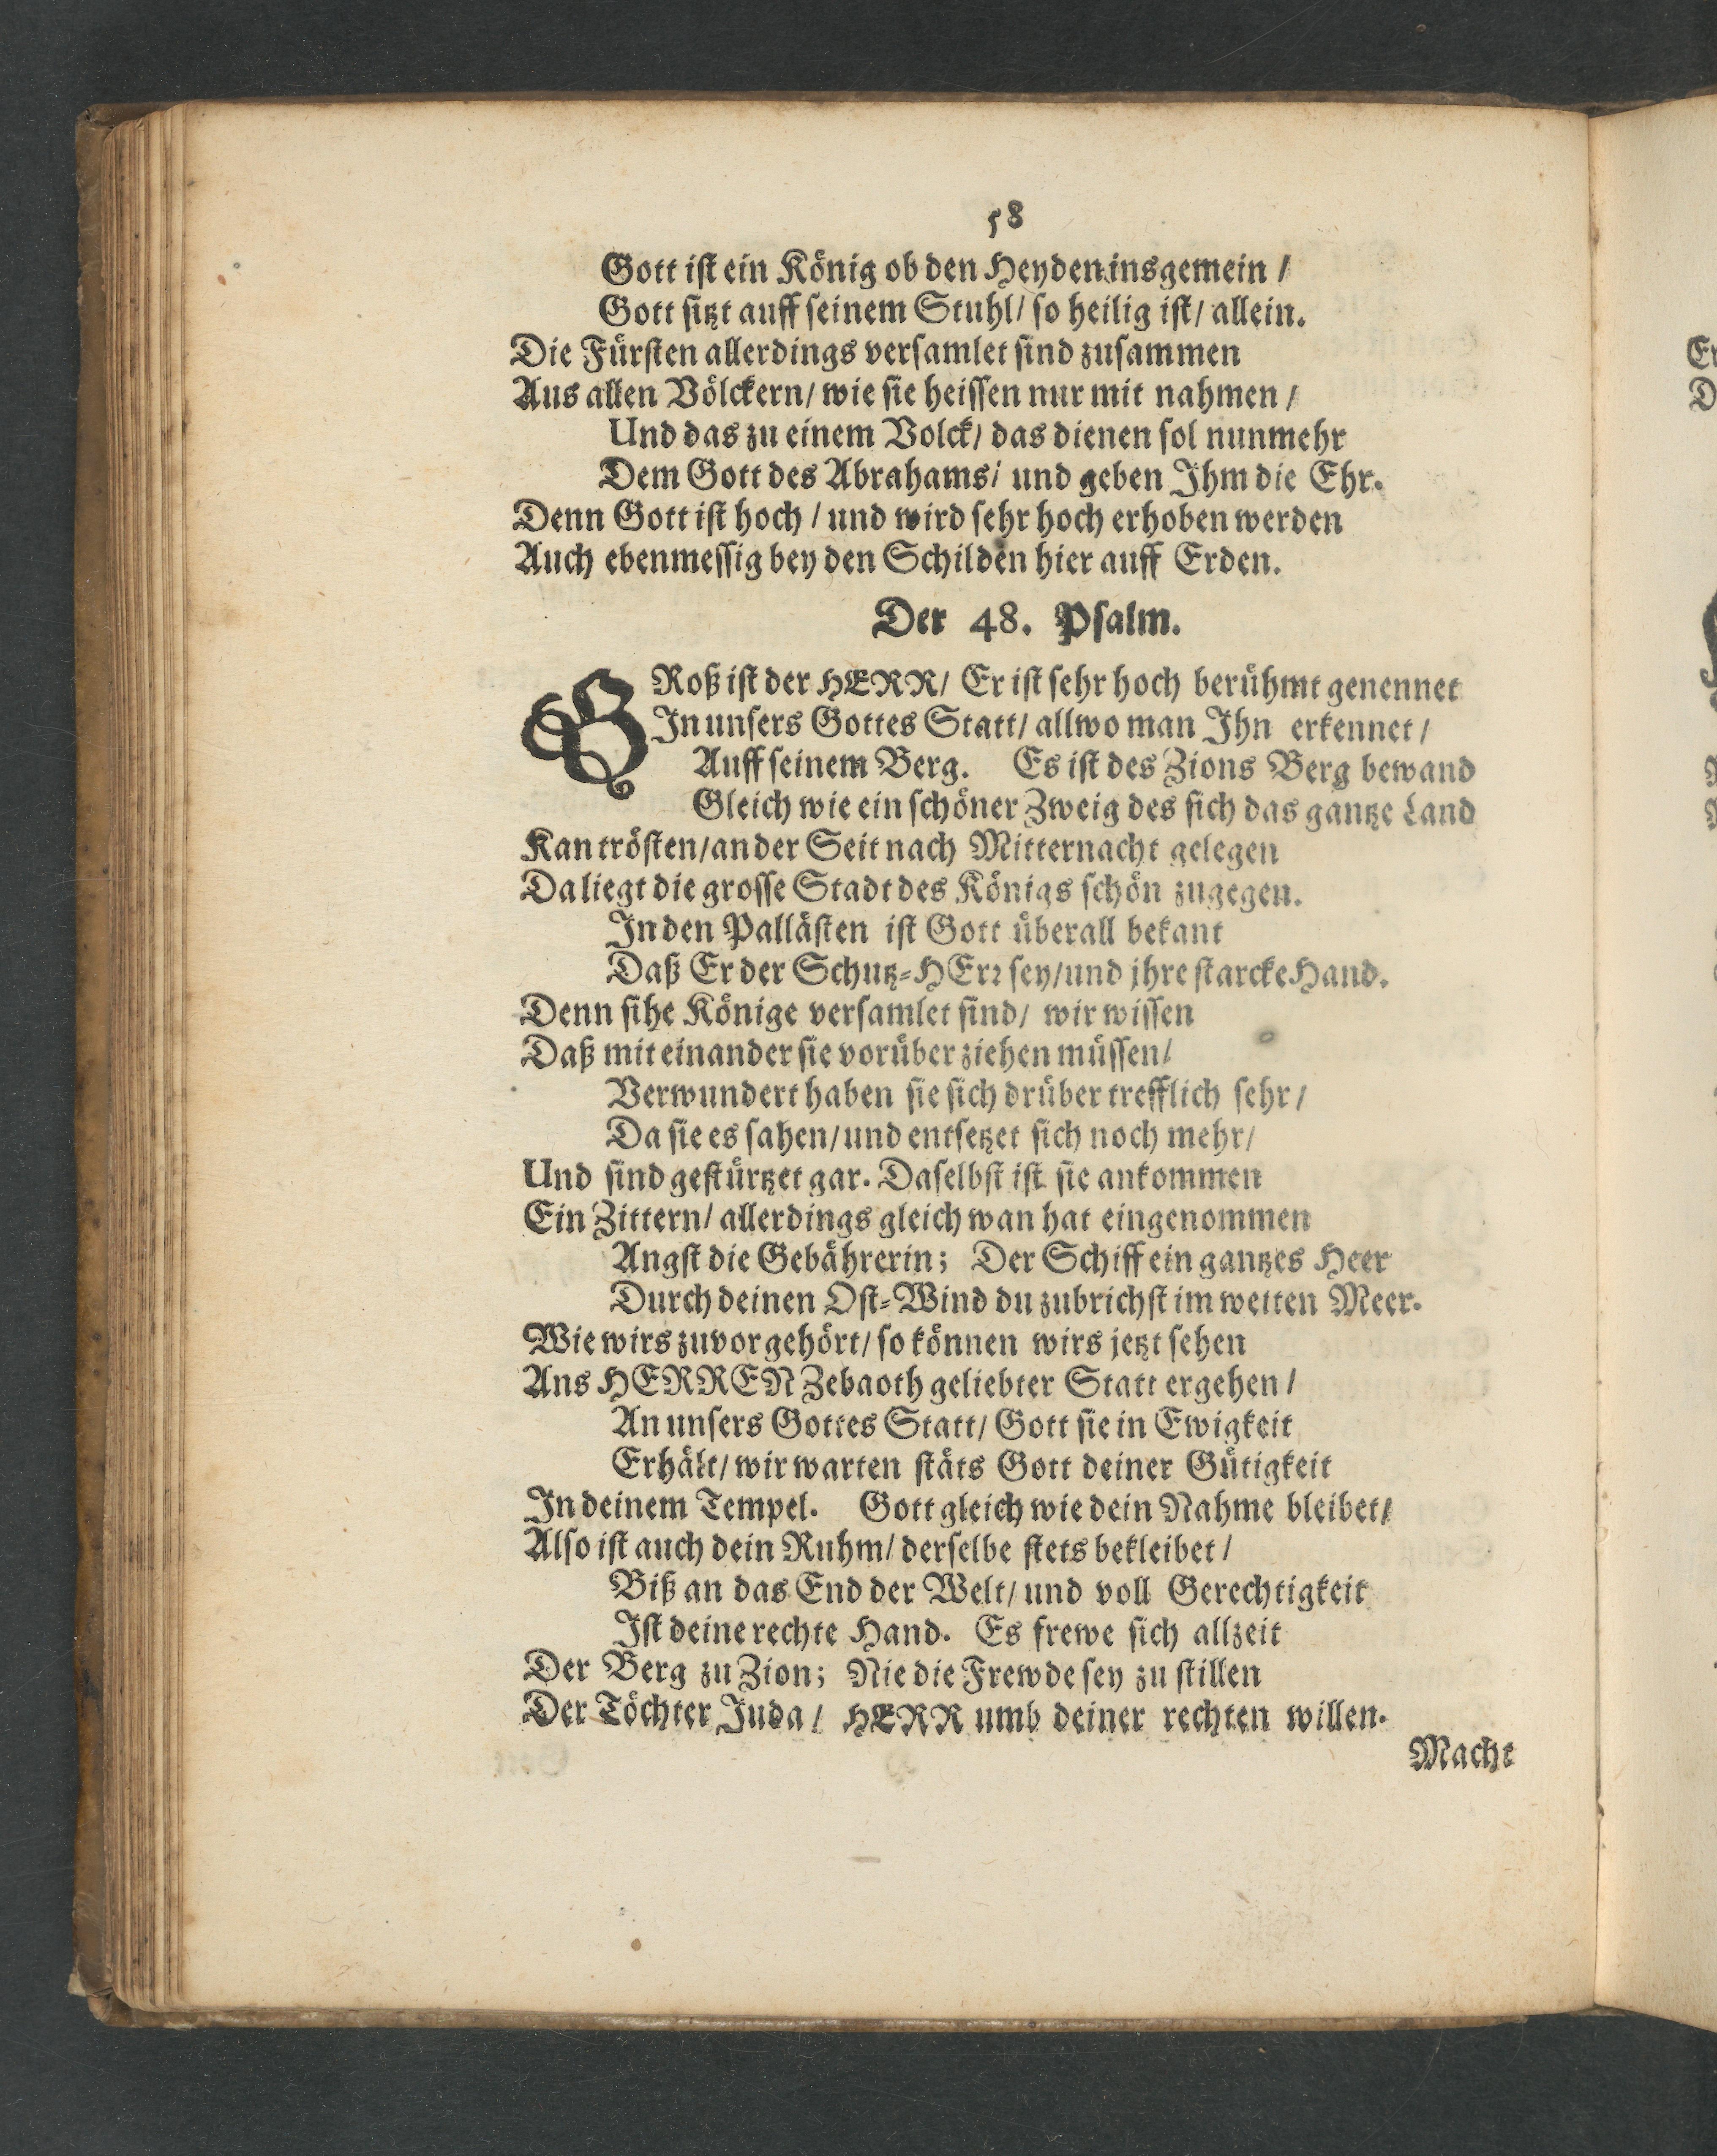 58
Gott ist ein König ob den Heyden insgemein /
Gott sitzt auff seinem Stuhl / so heilig ist / allein.
Die Fürsten allerdings versamlet sind zusammen
Aus allen Völckern / wie sie heissen nur mit nahmen /
Und das zu einem Volck / das dienen sol nunmehr
Dem Gott des Abrahams / und geben Ihm die Ehr.
Denn Gott ist hoch / und wird sehr hoch erhoben werden
Auch ebenmessig bey den Schilden hier auff Erden.
Der 48. Psalm.
GRoß ist der HERR / Er ist sehr hoch berühmt genennet
In unsers Gottes Statt / allwo man Ihn erkennet /
Auff seinem Berg. Es ist des Zions Berg bewand
Gleich wie ein schöner Zweig des sich das gantze Land
Kan trösten / an der Seit nach Mitternacht gelegen
Da liegt die grosse Stadt des Königs schön zugegen.
In den Pallästen ist Gott überall bekant
Daß Er der Schutz-HErr sey / und jhre starcke Hand.
Denn sihe Könige versamlet sind / wir wissen
Daß mit einander sie vorüber ziehen müssen /
Verwundert haben sie sich drüber trefflich sehr /
Da sie es sahen / und entsetzet sich noch mehr /
Und sind gestürtzet gar. Daselbst ist sie ankommen
Ein Zittern / allerdings gleich wan hat eingenommen
Angst die Gebährerin; Der Schiff ein gantzes Heer
Durch deinen Ost-Wind du zubrichst im weiten Meer.
Wie wirs zuvor gehört / so können wirs jetzt sehen
Ans HERREN Zebaoth geliebter Statt ergehen /
An unsers Gottes Statt / Gott sie in Ewigkeit
Erhält / wir warten stäts Gott deiner Gütigkeit
In deinem Tempel. Gott gleich wie dein Nahme bleibet /
Also ist auch dein Ruhm / derselbe stets bekleibet /
Biß an das End der Welt / und voll Gerechtigkeit
Ist deine rechte Hand. Es frewe sich allzeit
Der Berg zu Zion; Nie die Frewde sey zu stillen
Der Töchter Juda / HERR umb deiner rechten willen.
Macht